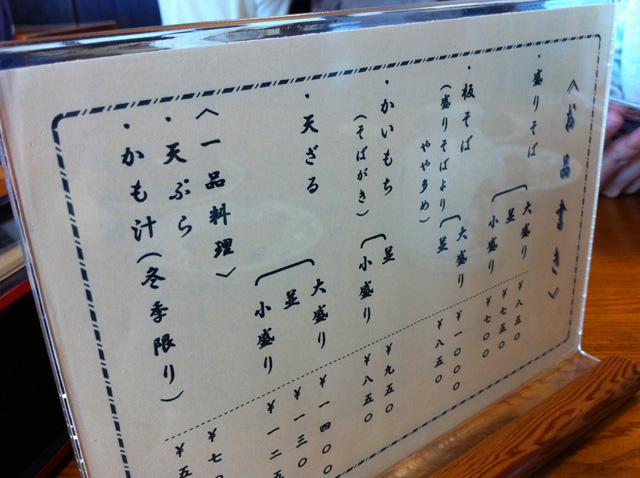 《お品書き》
・盛りそば
大盛り ￥八五〇
並 ￥七五〇
小盛り ￥七〇〇
・板そば
(盛りそばより
やや多め)
大盛り ￥一〇〇〇
並 ￥八五〇
・かいもち
(そばがき)
並 ￥九五〇
小盛り ￥八五〇
・天ざる
大盛り ￥一四〇〇
並 ￥一三〇〇
小盛り ￥一二五
〈一品料理〉
・天ぷら ￥七〇
・かも汁(冬季限り) ￥五